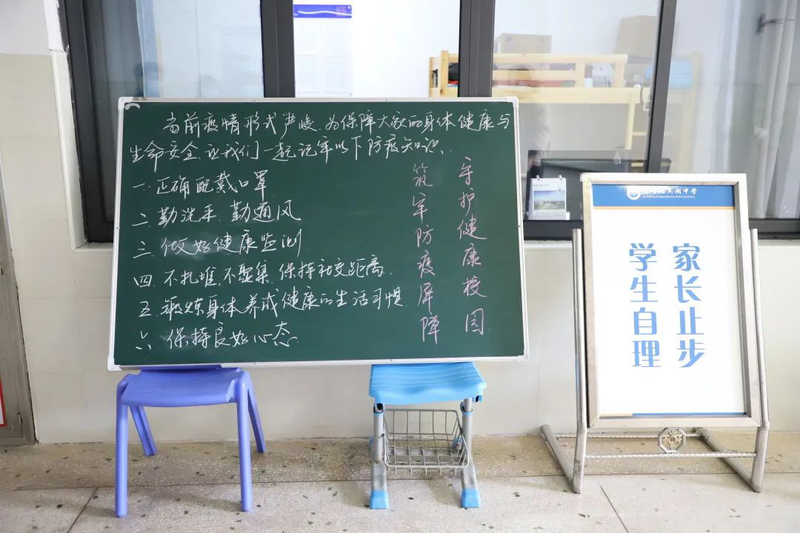 当前疫情形式严峻，为保障大家的身体健康与
生命安全，让我们一起记牢以下防疫知识：
一、正确配戴口罩
二、勤洗手、勤通风
三、做好健康监测
四、不扎堆、不聚集、保持社交距离
五、锻炼身体养成健康的生活习惯
六、保持良好心态
守护健康校园
筑牢防疫屏障
家长止步
学生自理